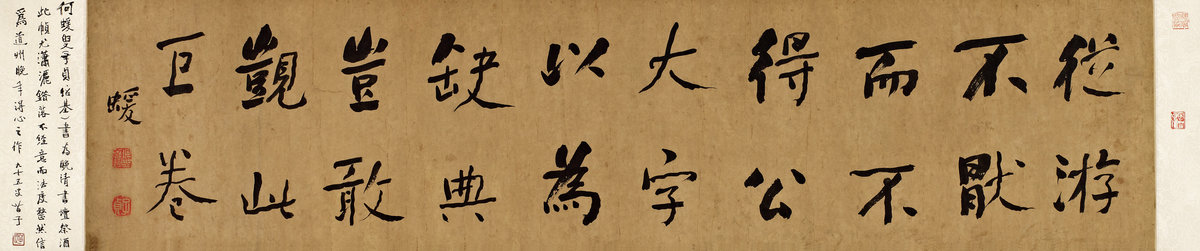 從游
不厭
而不
得公
大字
以為
缺典
豈敢
覬此
巨卷
蝯
何蝯叟(子貞紹基)書為晚清書壇祭酒
此幀尤瀟灑錯落不經意而法度整然信
為道州晚年得心之作 九十五叟